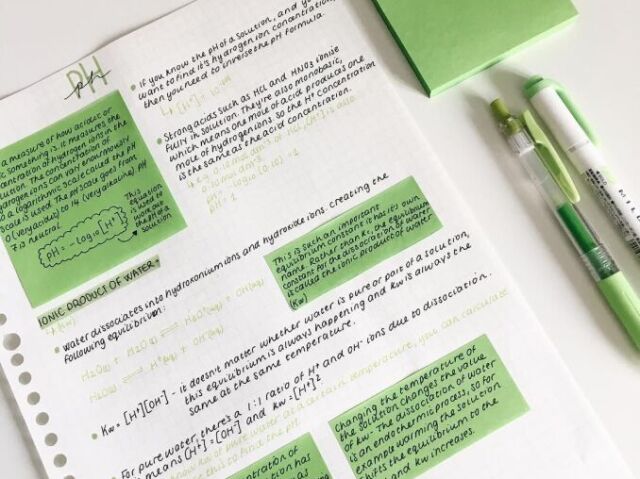 pH
pH
• If you know the pH of a solution, and you
want to find it's hydrogen ion concentration,
then you need to inverse the pH formula.
↳ [H+] = 10^-pH
• Strong acids such as HCl and HNO3 ionise
fully in solution. They're also monobasic,
which means one mole of acid produces one
mole of hydrogen ions. So the H+ concentration
is the same as the acid concentration.
↳ e.g. 0.10 mol dm-3 of HCl, [H+] is also
0.10 mol dm-3.
pH = -log10 (0.10) = 1
pH = 1
a measure of how acidic or
something is. It measures the
concentration of hydrogen ions in the
solution. The concentration of
hydrogen ions can vary enormously
so a logarithmic scale called the pH
scale is used. The pH scale goes from
0 (very acidic) to 14 (very alkaline). pH
7 is neutral.
pH = -log10 [H+]
This
equation
is used to
work out
the pH of a
solution
IONIC PRODUCT OF WATER.
• Water dissociates into hydroxonium ions and hydroxide ions. creating the
following equilibrium:
H2O(l) + H2O(l) ⇌ H3O+(aq) + OH-(aq)
H2O(l) ⇌ H+(aq) + OH-(aq)
This is such an important
equilibrium constant it has it's own
name. Rather than Kc, the equilibrium
constant for the dissociation of water
is called the ionic product of water
(Kw)
• Kw = [H+][OH-] - it doesn't matter whether water is pure or part of a solution,
this equilibrium is always happening and Kw is always the
same at the same temperature.
• For pure water, there's a 1:1 ratio of H+ and OH- ions due to dissociation.
means [H+] = [OH-] and Kw = [H+]2.
know Kw of pure water at a certain temperature, you can calculate
this to find the pH
Changing the temperature of
the solution changes the value
of Kw. The dissociation of water
is an endothermic process, so for
example warming the solution
shifts the equilibrium to the
and Kw increases.
concentration of
solution has